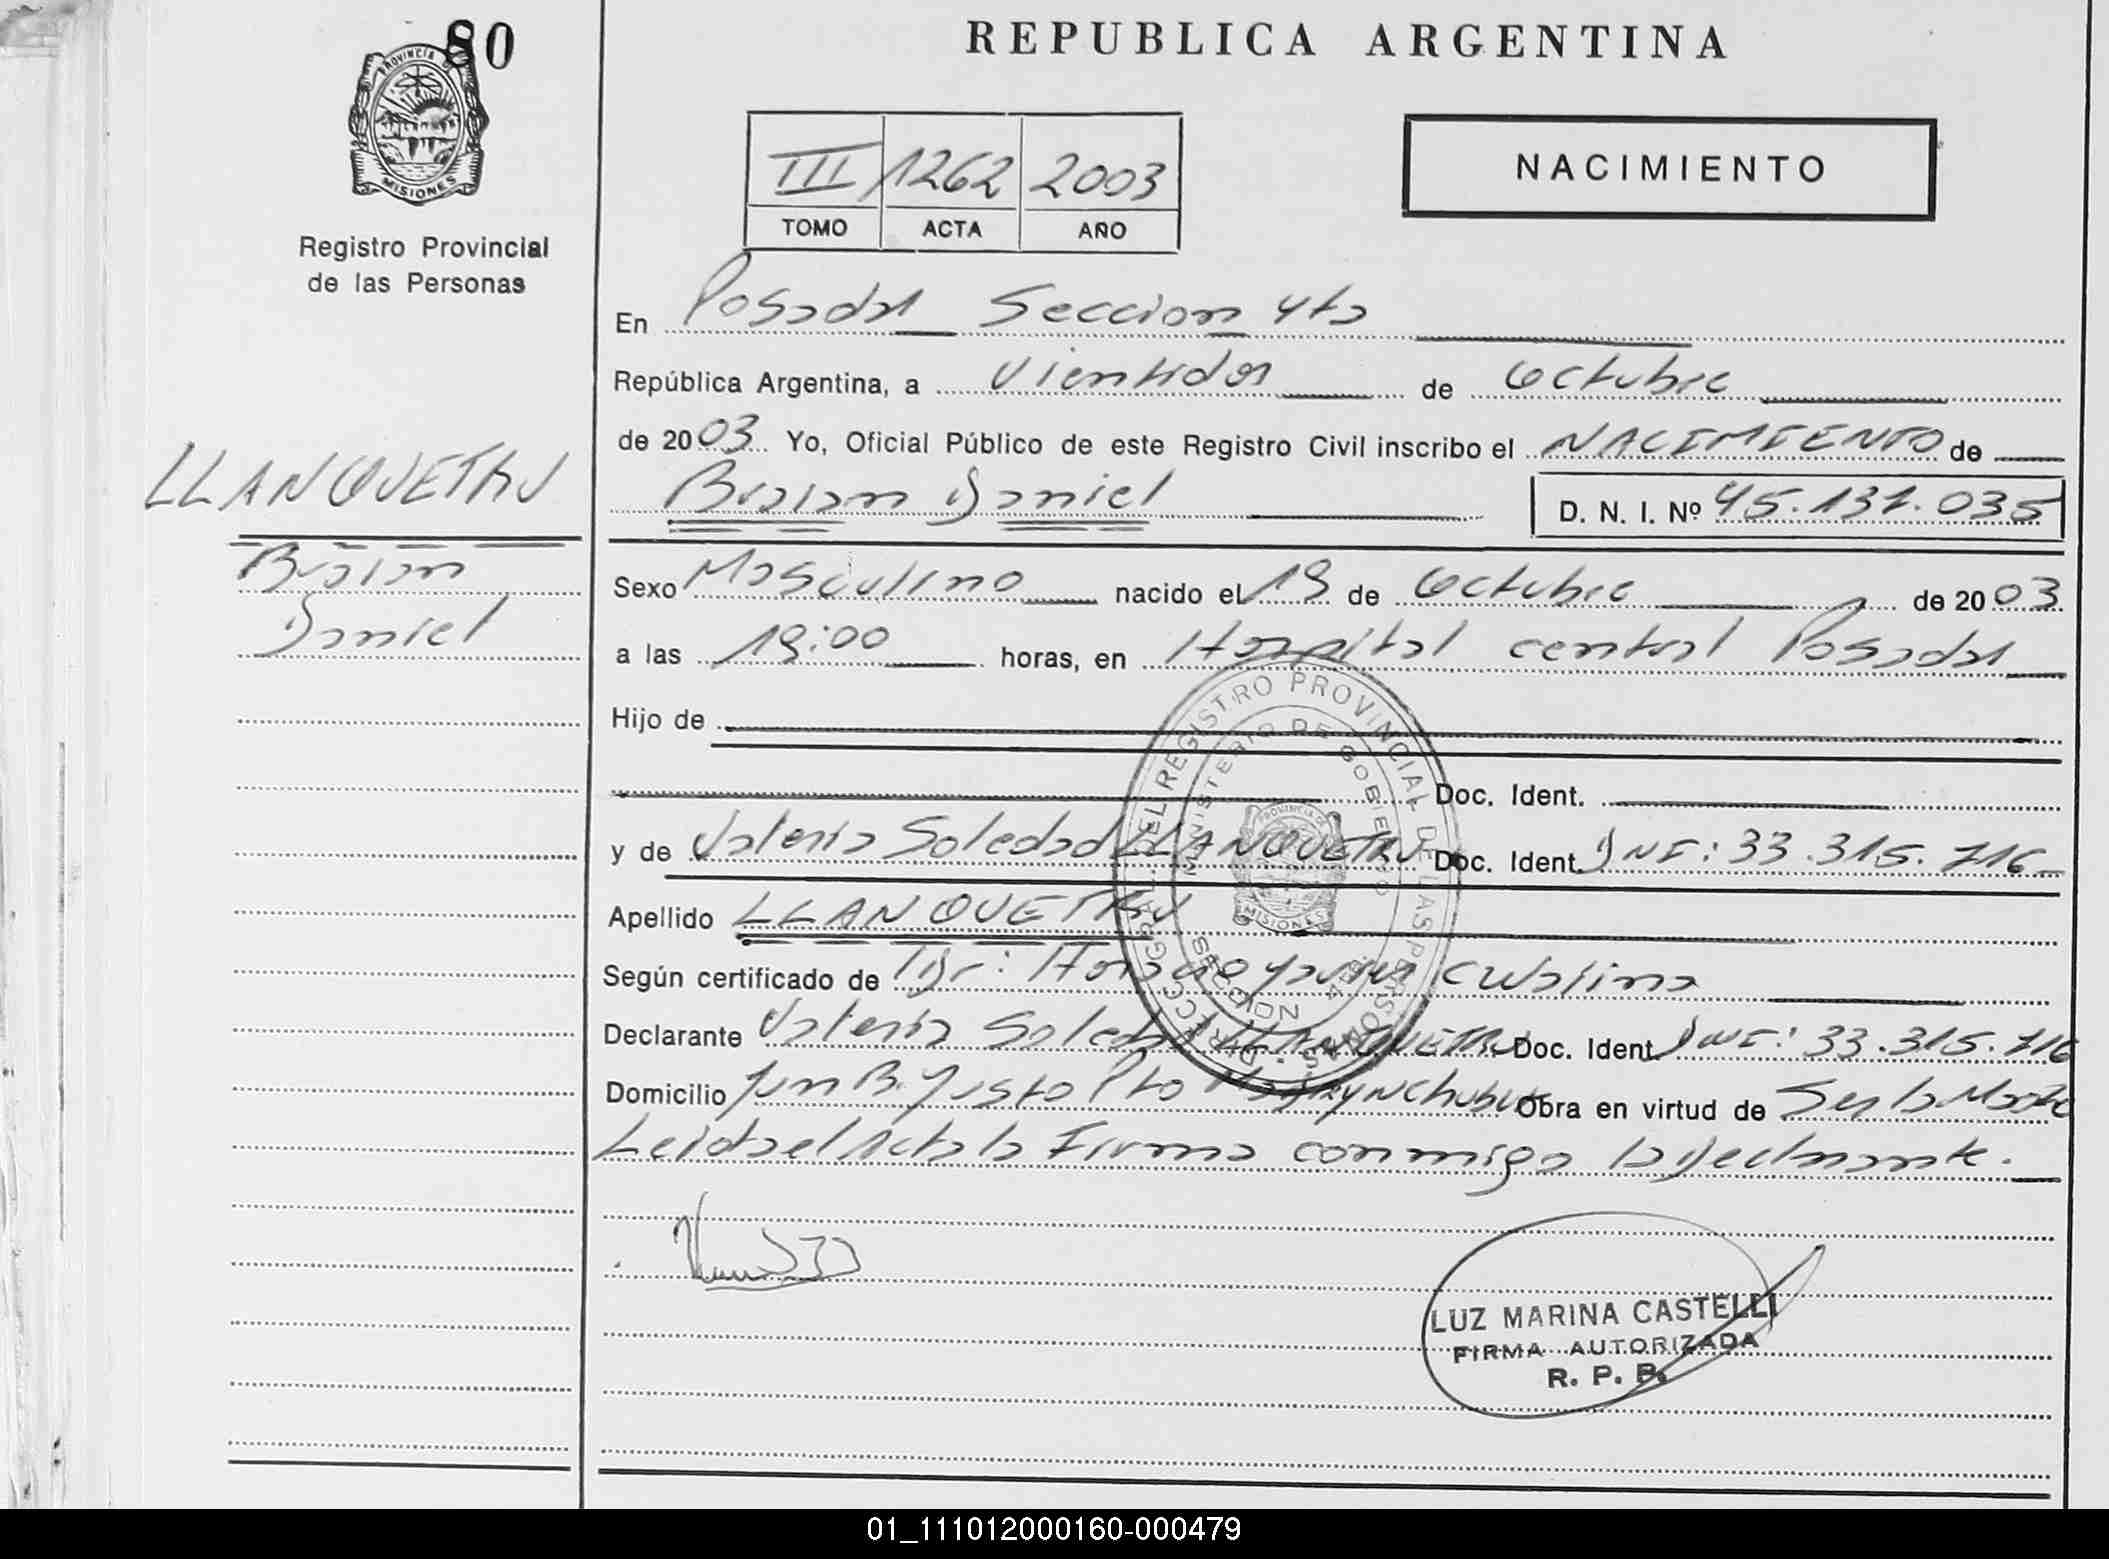 80
REPUBLICA ARGENTINA
PROVINCIA DE
MISIONES
Registro Provincial
de las Personas
III 1262 2003
TOMO ACTA AÑO
NACIMIENTO
En Posadas Seccion 4ta
República Argentina, a Vientidos de Octubre
de 2003 Yo, Oficial Público de este Registro Civil inscribo el NACIMIENTO de
LLANQUETRU
Braian Daniel D. N. I. Nº 45.137.035
Braian
Daniel
Sexo Masculino nacido el 19 de Octubre de 2003
a las 19:00 horas, en Hospital central Posadas
Hijo de
Doc. Ident.
y de Valeria Soledad LLANQUETRU Doc. Ident. DNI: 33.315.716
Apellido LLANQUETRU
Según certificado de Dr: Horacio Cubalina
Declarante Valeria Soledad LLANQUETRU Doc. Ident DNI: 33.315.716
Domicilio Juan B. Justo Pto MADRYN Chubut Obra en virtud de Ser la Madre
Leida el Acta la Firma conmigo la declarante.
DIRECC. GRAL. DEL REGISTRO PROVINCIAL DE LAS PERSONAS
MINISTERIO DE GOBIERNO
MISIONES
LUZ MARINA CASTELLI
FIRMA AUTORIZADA
R. P. P.
01_111012000160-000479